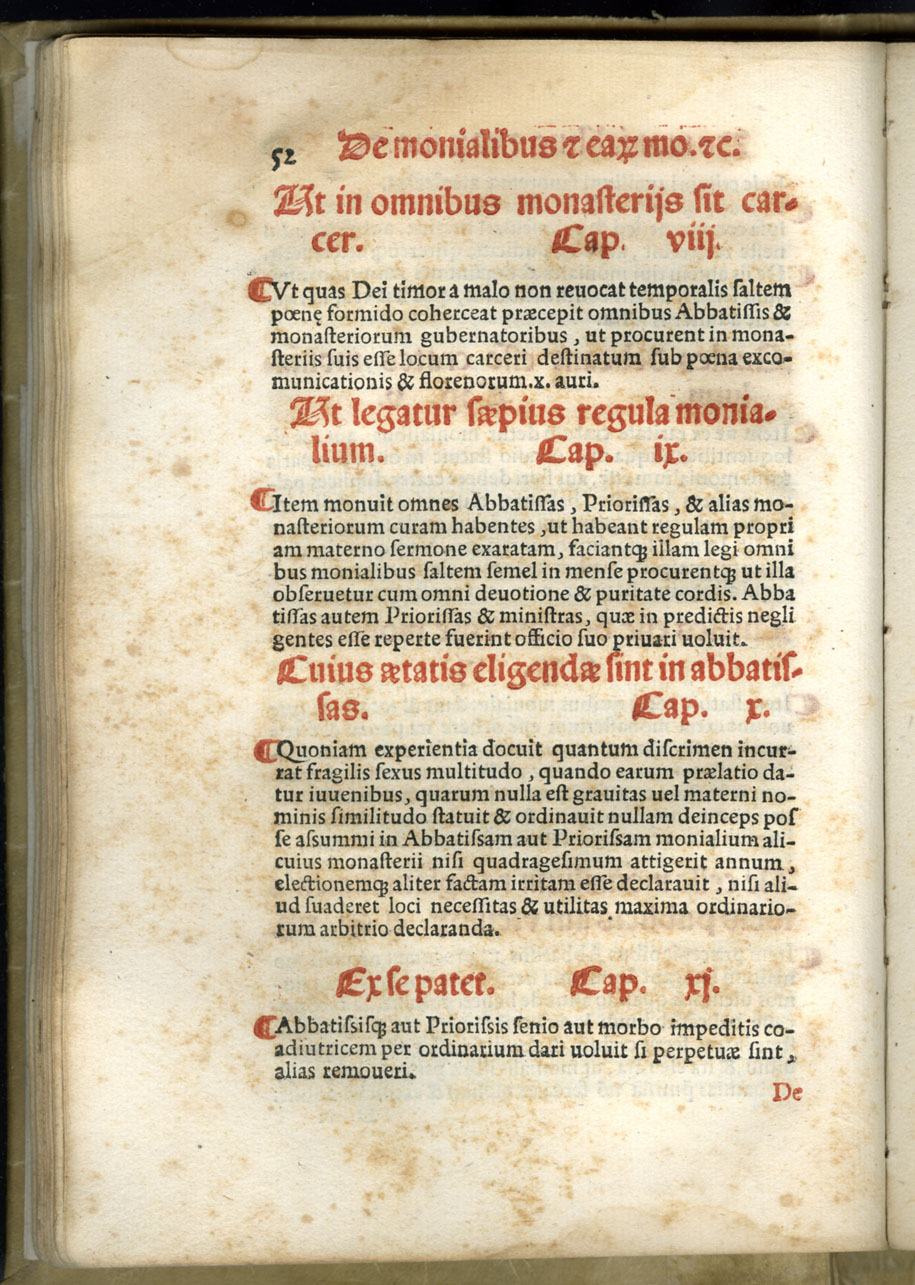 52 De monialibus ⁊ eaꝝ mo. ⁊c.
Ut in omnibus monasterijs sit car-
cer. Cap. viij.
¶Vt quas Dei timor a malo non reuocat temporalis saltem
pœnę formido coherceat præcepit omnibus Abbatissis &
monasteriorum gubernatoribus, ut procurent in mona-
steriis suis esse locum carceri destinatum sub pœna exco-
municationis & florenorum.x. auri.
Ut legatur sæpius regula monia-
lium. Cap. ix.
¶Item monuit omnes Abbatissas, Priorissas, & alias mo-
nasteriorum curam habentes, ut habeant regulam propri
am materno sermone exaratam, faciantqꝫ illam legi omni
bus monialibus saltem semel in mense procurentqꝫ ut illa
obseruetur cum omni deuotione & puritate cordis. Abba
tissas autem Priorissas & ministras, quæ in predictis negli
gentes esse reperte fuerint officio suo priuari uoluit.
Cuius ætatis eligendæ sint in abbatis-
sas. Cap. x.
¶Quoniam experientia docuit quantum discrimen incur-
rat fragilis sexus multitudo, quando earum prælatio da-
tur iuuenibus, quarum nulla est grauitas uel materni no-
minis similitudo statuit & ordinauit nullam deinceps pos
se assummi in Abbatissam aut Priorissam monialium ali-
cuius monasterii nisi quadragesimum attigerit annum,
electionemqꝫ aliter factam irritam esse declarauit, nisi ali-
ud suaderet loci necessitas & utilitas maxima ordinario-
rum arbitrio declaranda.
Ex se patet. Cap. xj.
¶Abbatissisqꝫ aut Priorissis senio aut morbo impeditis co-
adiutricem per ordinarium dari uoluit si perpetuæ sint,
alias remoueri.
De